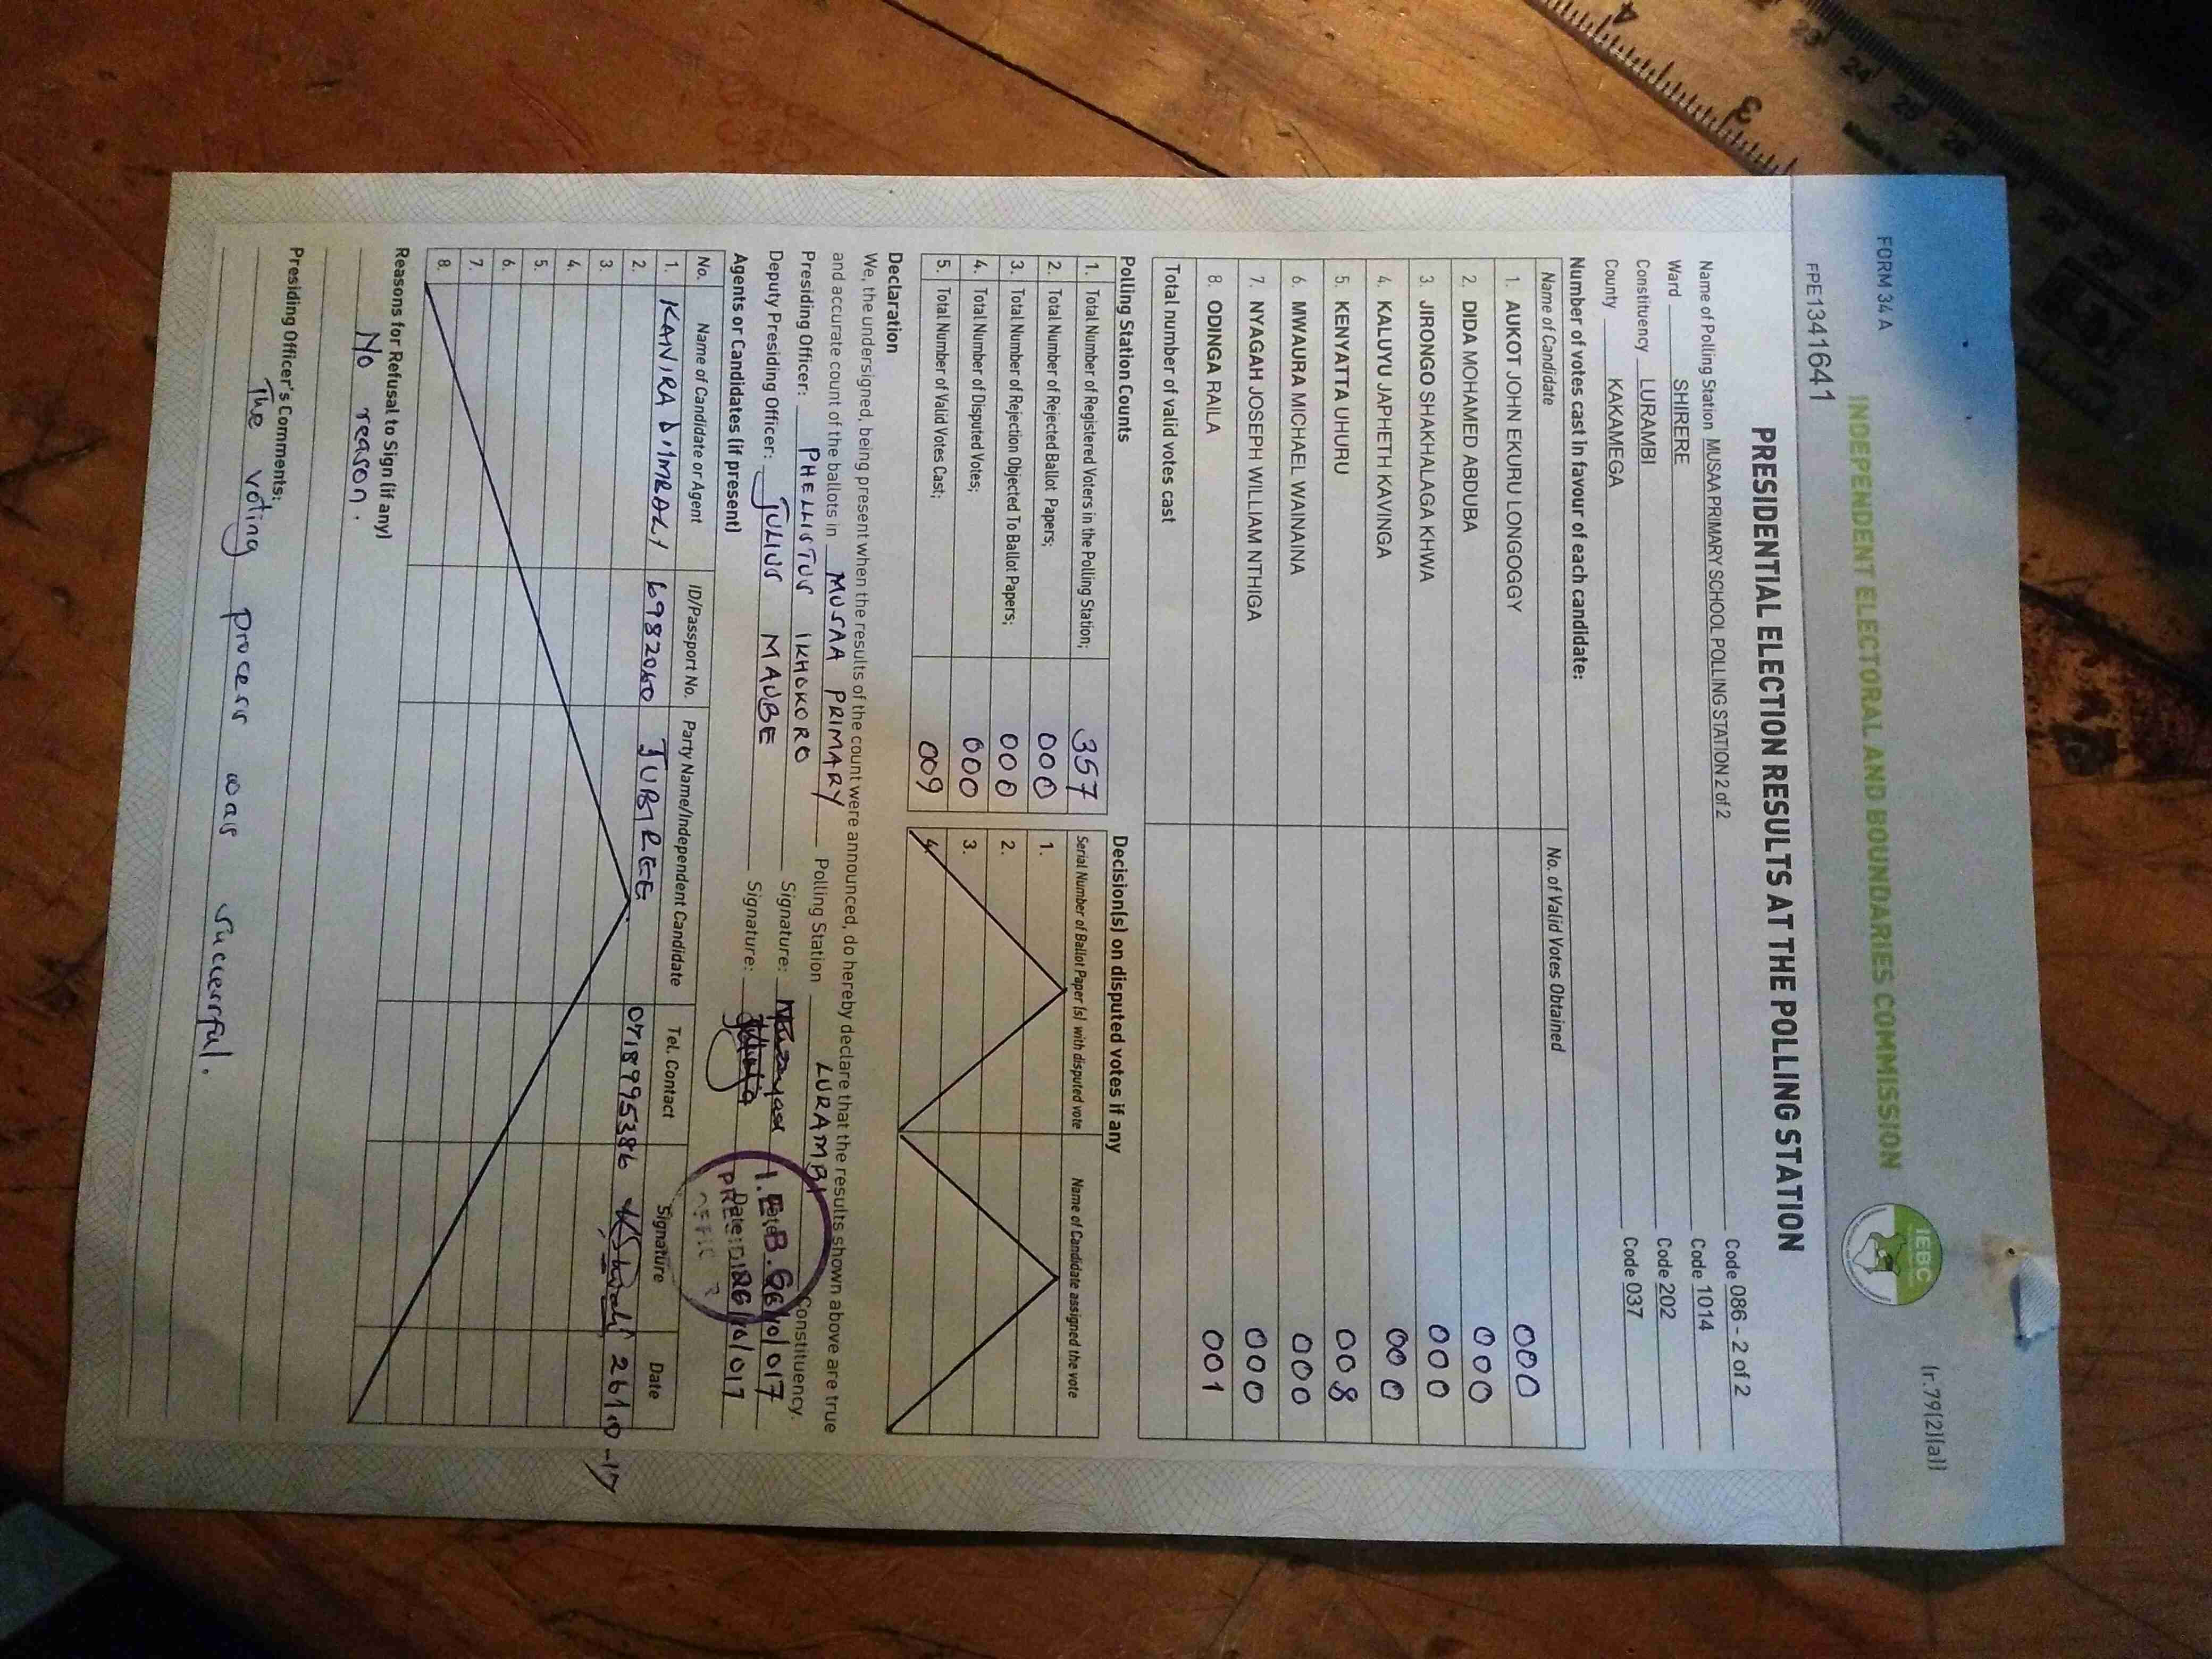 FORM 34 A
(r.79(2)(a))
INDEPENDENT ELECTORAL AND BOUNDARIES COMMISSION
IEBC
FPE1341641
PRESIDENTIAL ELECTION RESULTS AT THE POLLING STATION
Name of Polling Station MUSAA PRIMARY SCHOOL POLLING STATION 2 of 2 Code 086 - 2 of 2
Ward SHIRERE Code 1014
Constituency LURAMBI Code 202
County KAKAMEGA Code 037
Number of votes cast in favour of each candidate:
Name of Candidate No. of Valid Votes Obtained
1. AUKOT JOHN EKURU LONGOGGY 000
2. DIDA MOHAMED ABDUBA 000
3. JIRONGO SHAKHALAGA KHWA 000
4. KALUYU JAPHETH KAVINGA 000
5. KENYATTA UHURU 008
6. MWAURA MICHAEL WAINAINA 000
7. NYAGAH JOSEPH WILLIAM NTHIGA 000
8. ODINGA RAILA 001
Total number of valid votes cast
Polling Station Counts
1. Total Number of Registered Voters in the Polling Station; 357
2. Total Number of Rejected Ballot Papers; 000
3. Total Number of Rejection Objected To Ballot Papers; 000
4. Total Number of Disputed Votes; 000
5. Total Number of Valid Votes Cast; 009
Decision(s) on disputed votes if any
Serial Number of Ballot Paper (s) with disputed vote Name of Candidate assigned the vote
1.
2.
3.
4.
Declaration
We, the undersigned, being present when the results of the count were announced, do hereby declare that the results shown above are true
and accurate count of the ballots in MUSAA PRIMARY Polling Station LURAMBI Constituency.
Presiding Officer: PHELLISTUS IKHOKORO Signature: Date: 26/10/017
Deputy Presiding Officer: JULIUS MAUBE Signature: Date: 26/10/017
I.E.B.C
Agents or Candidates (if present)
No. Name of Candidate or Agent ID/Passport No. Party Name/Independent Candidate Tel. Contact Signature Date
1. KANIRA 6982060 JUBILEE 0718995386 26/10-17
2.
3.
4.
5.
6.
7.
8.
Reasons for Refusal to Sign (if any)
No reason.
Presiding Officer's Comments:
The voting process was successful.
3
4
23
24
25
26